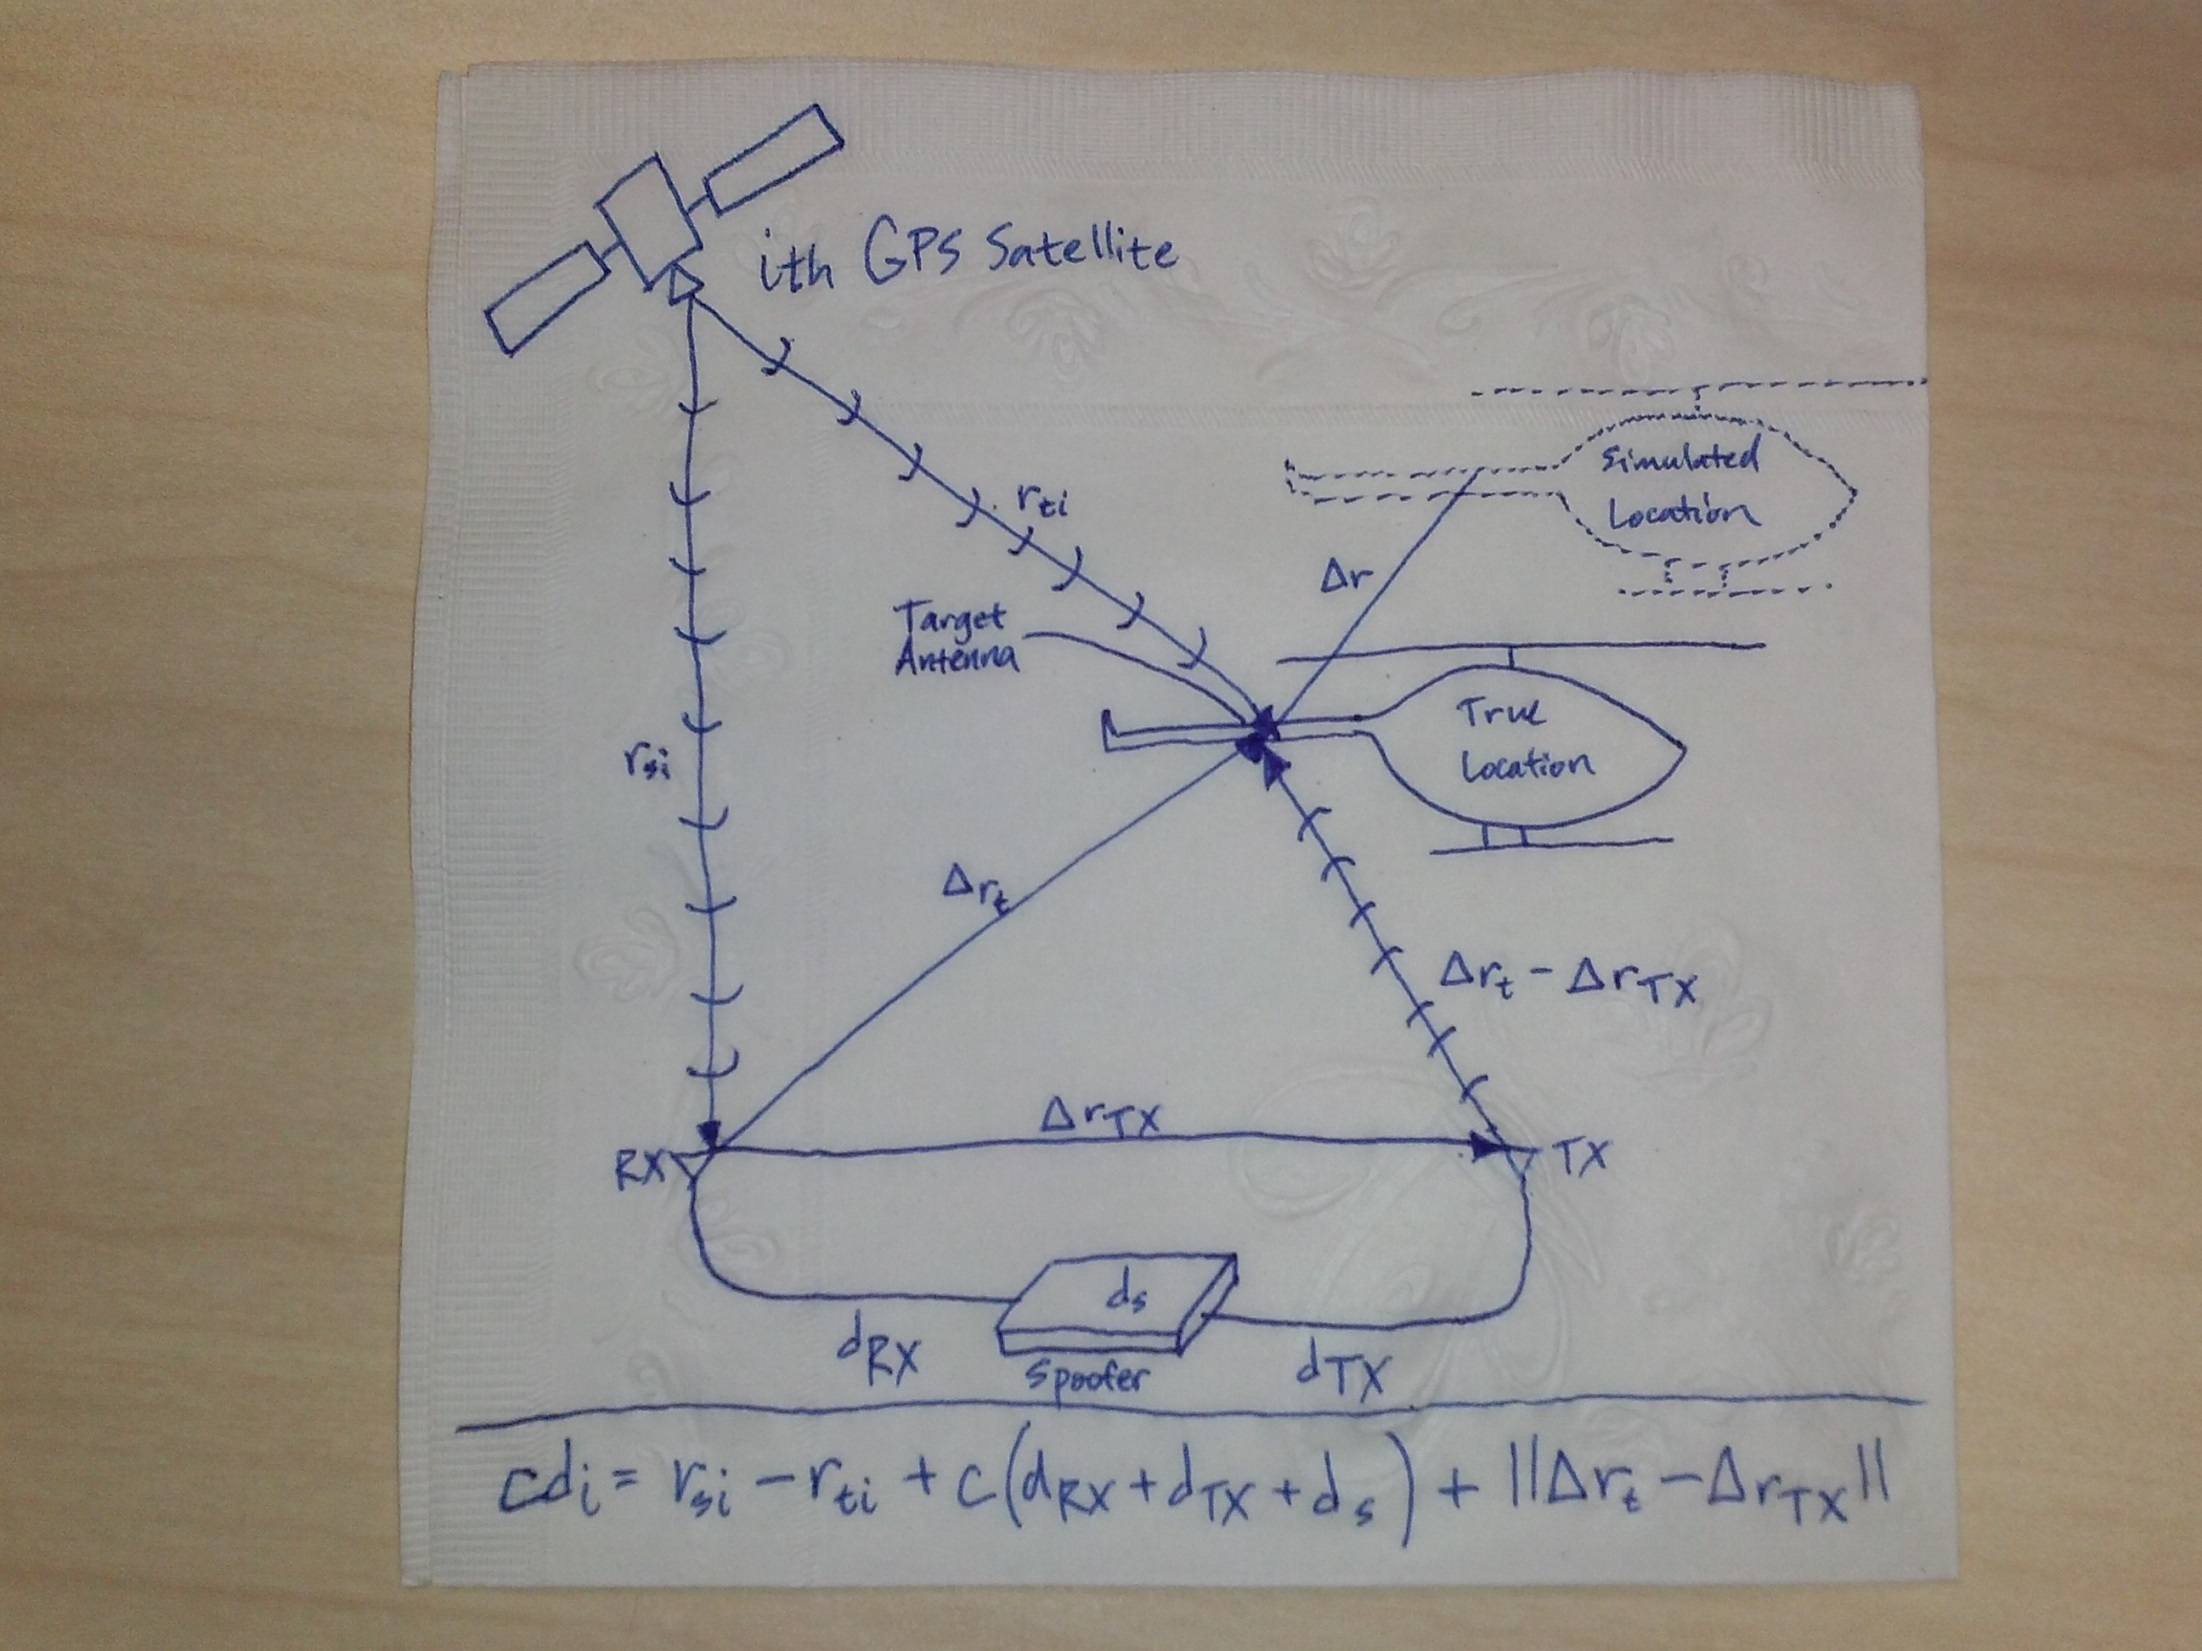 ith GPS Satellite
rti
Simulated
Location
Δr
Target
Antenna
True
Location
rsi
Δrt
Δrt - ΔrTX
ΔrTX
RX
TX
ds
dRX
Spoofer
dTX
cdi = rsi - rti + c(dRX + dTX + ds) + ||Δrt - ΔrTX||